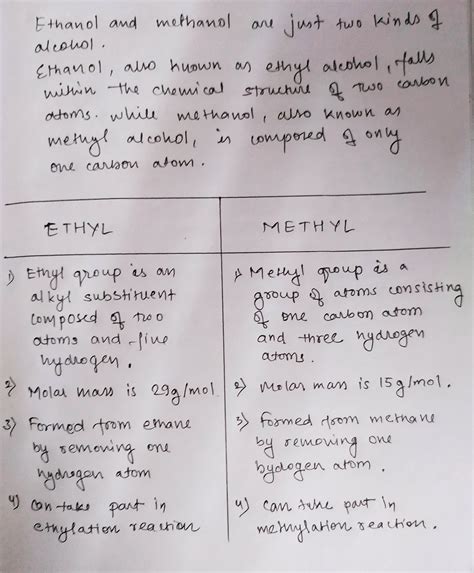 Ethanol and methanol are just two kinds of
alcohol.
Ethanol, also known as ethyl alcohol, falls
within the chemical structure of two carbon
atoms. while methanol, also known as
methyl alcohol, is composed of only
one carbon atom.
ETHYL
METHYL
1) Ethyl group is an
alkyl substituent
composed of two
atoms and five
hydrogen.
2) Molar mass is 29g/mol.
3) Formed from ethane
by removing one
hydrogen atom
4) Can take part in
ethylation reaction
1) Methyl group is a
group of atoms consisting
of one carbon atom
and three hydrogen
atoms.
2) Molar mass is 15g/mol.
3) formed from methane
by removing one
hydogen atom.
4) Can take part in
methylation reaction.